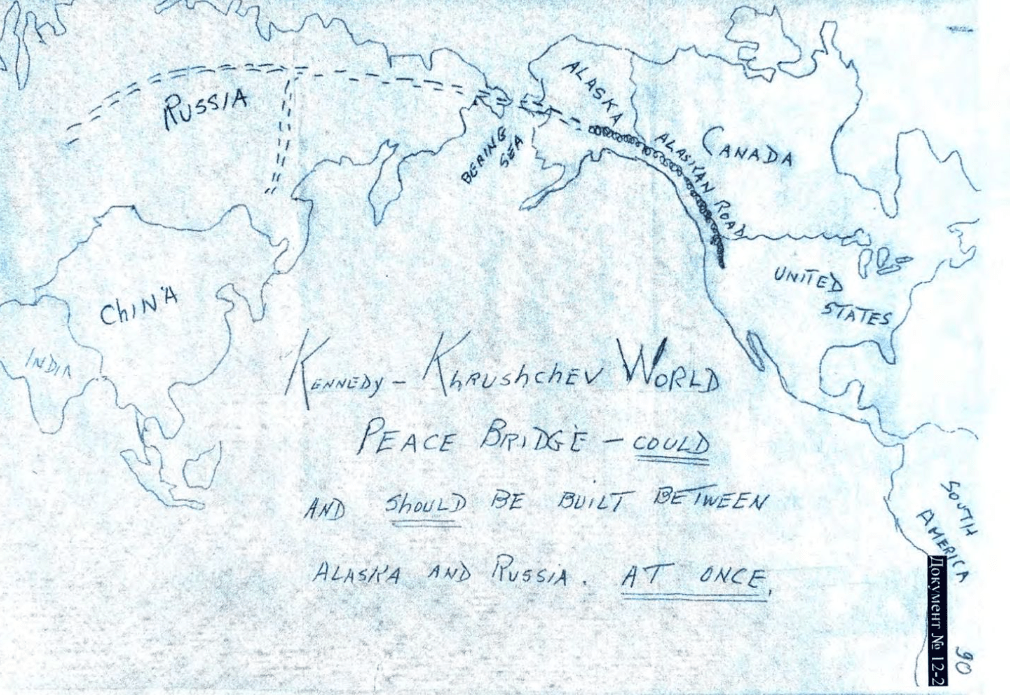 RUSSIA
ALASKA
BERING
SEA
ALASKAN ROAD
CANADA
CHINA
INDIA
UNITED
STATES
KENNEDY – KHRUSHCHEV WORLD
PEACE BRIDGE – COULD
AND SHOULD BE BUILT BETWEEN
ALASKA AND RUSSIA. AT ONCE.
SOUTH
AMERICA
Документ № 12-2
90